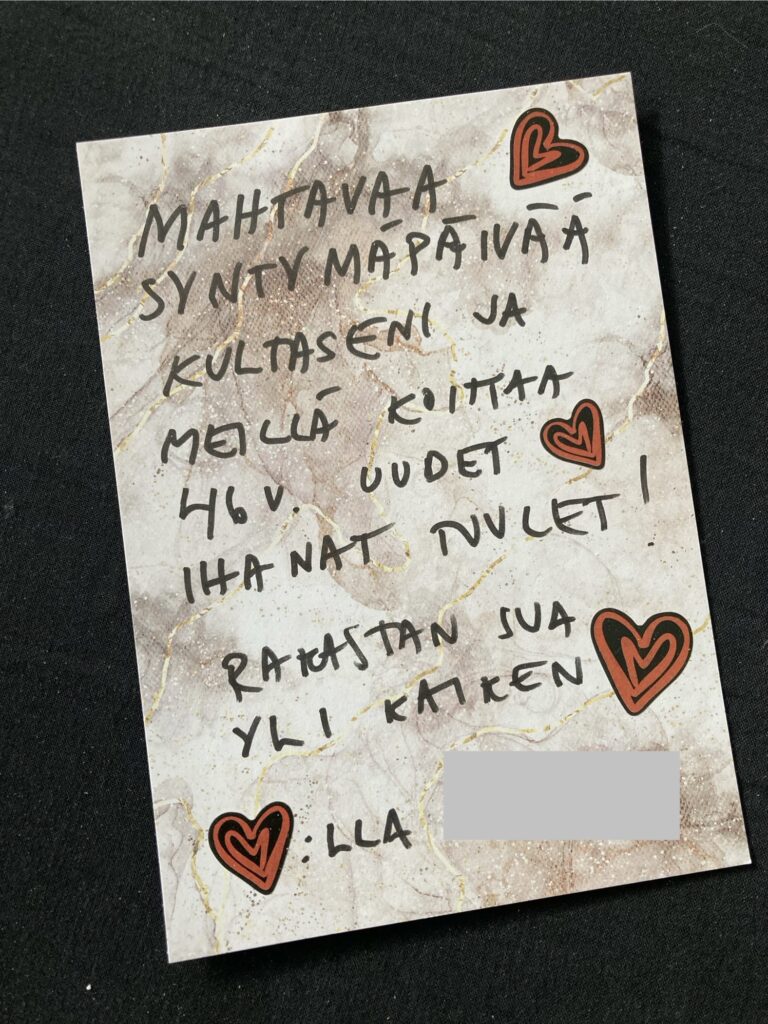 MAHTAVAA
SYNTYMÄPÄIVÄÄ
KULTASENI JA
MEILLÄ KOITTAA
46 V. UUDET
IHANAT TUULET!
RAKASTAN SUA
YLI KAIKEN
:LLA